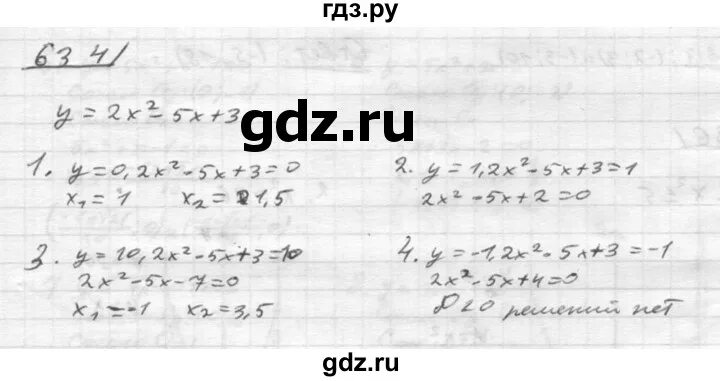 гдз.ру
634
y = 2x² - 5x + 3
gdz.ru
1. y = 0, 2x² - 5x + 3 = 0
x₁ = 1 x₂ = 1,5
2. y = 1, 2x² - 5x + 3 = 1
2x² - 5x + 2 = 0
3. y = 10, 2x² - 5x + 3 = 10
2x² - 5x - 7 = 0
x₁ = -1 x₂ = 3,5
4. y = -1, 2x² - 5x + 3 = -1
2x² - 5x + 4 = 0
D < 0 решений нет
gdz.ru